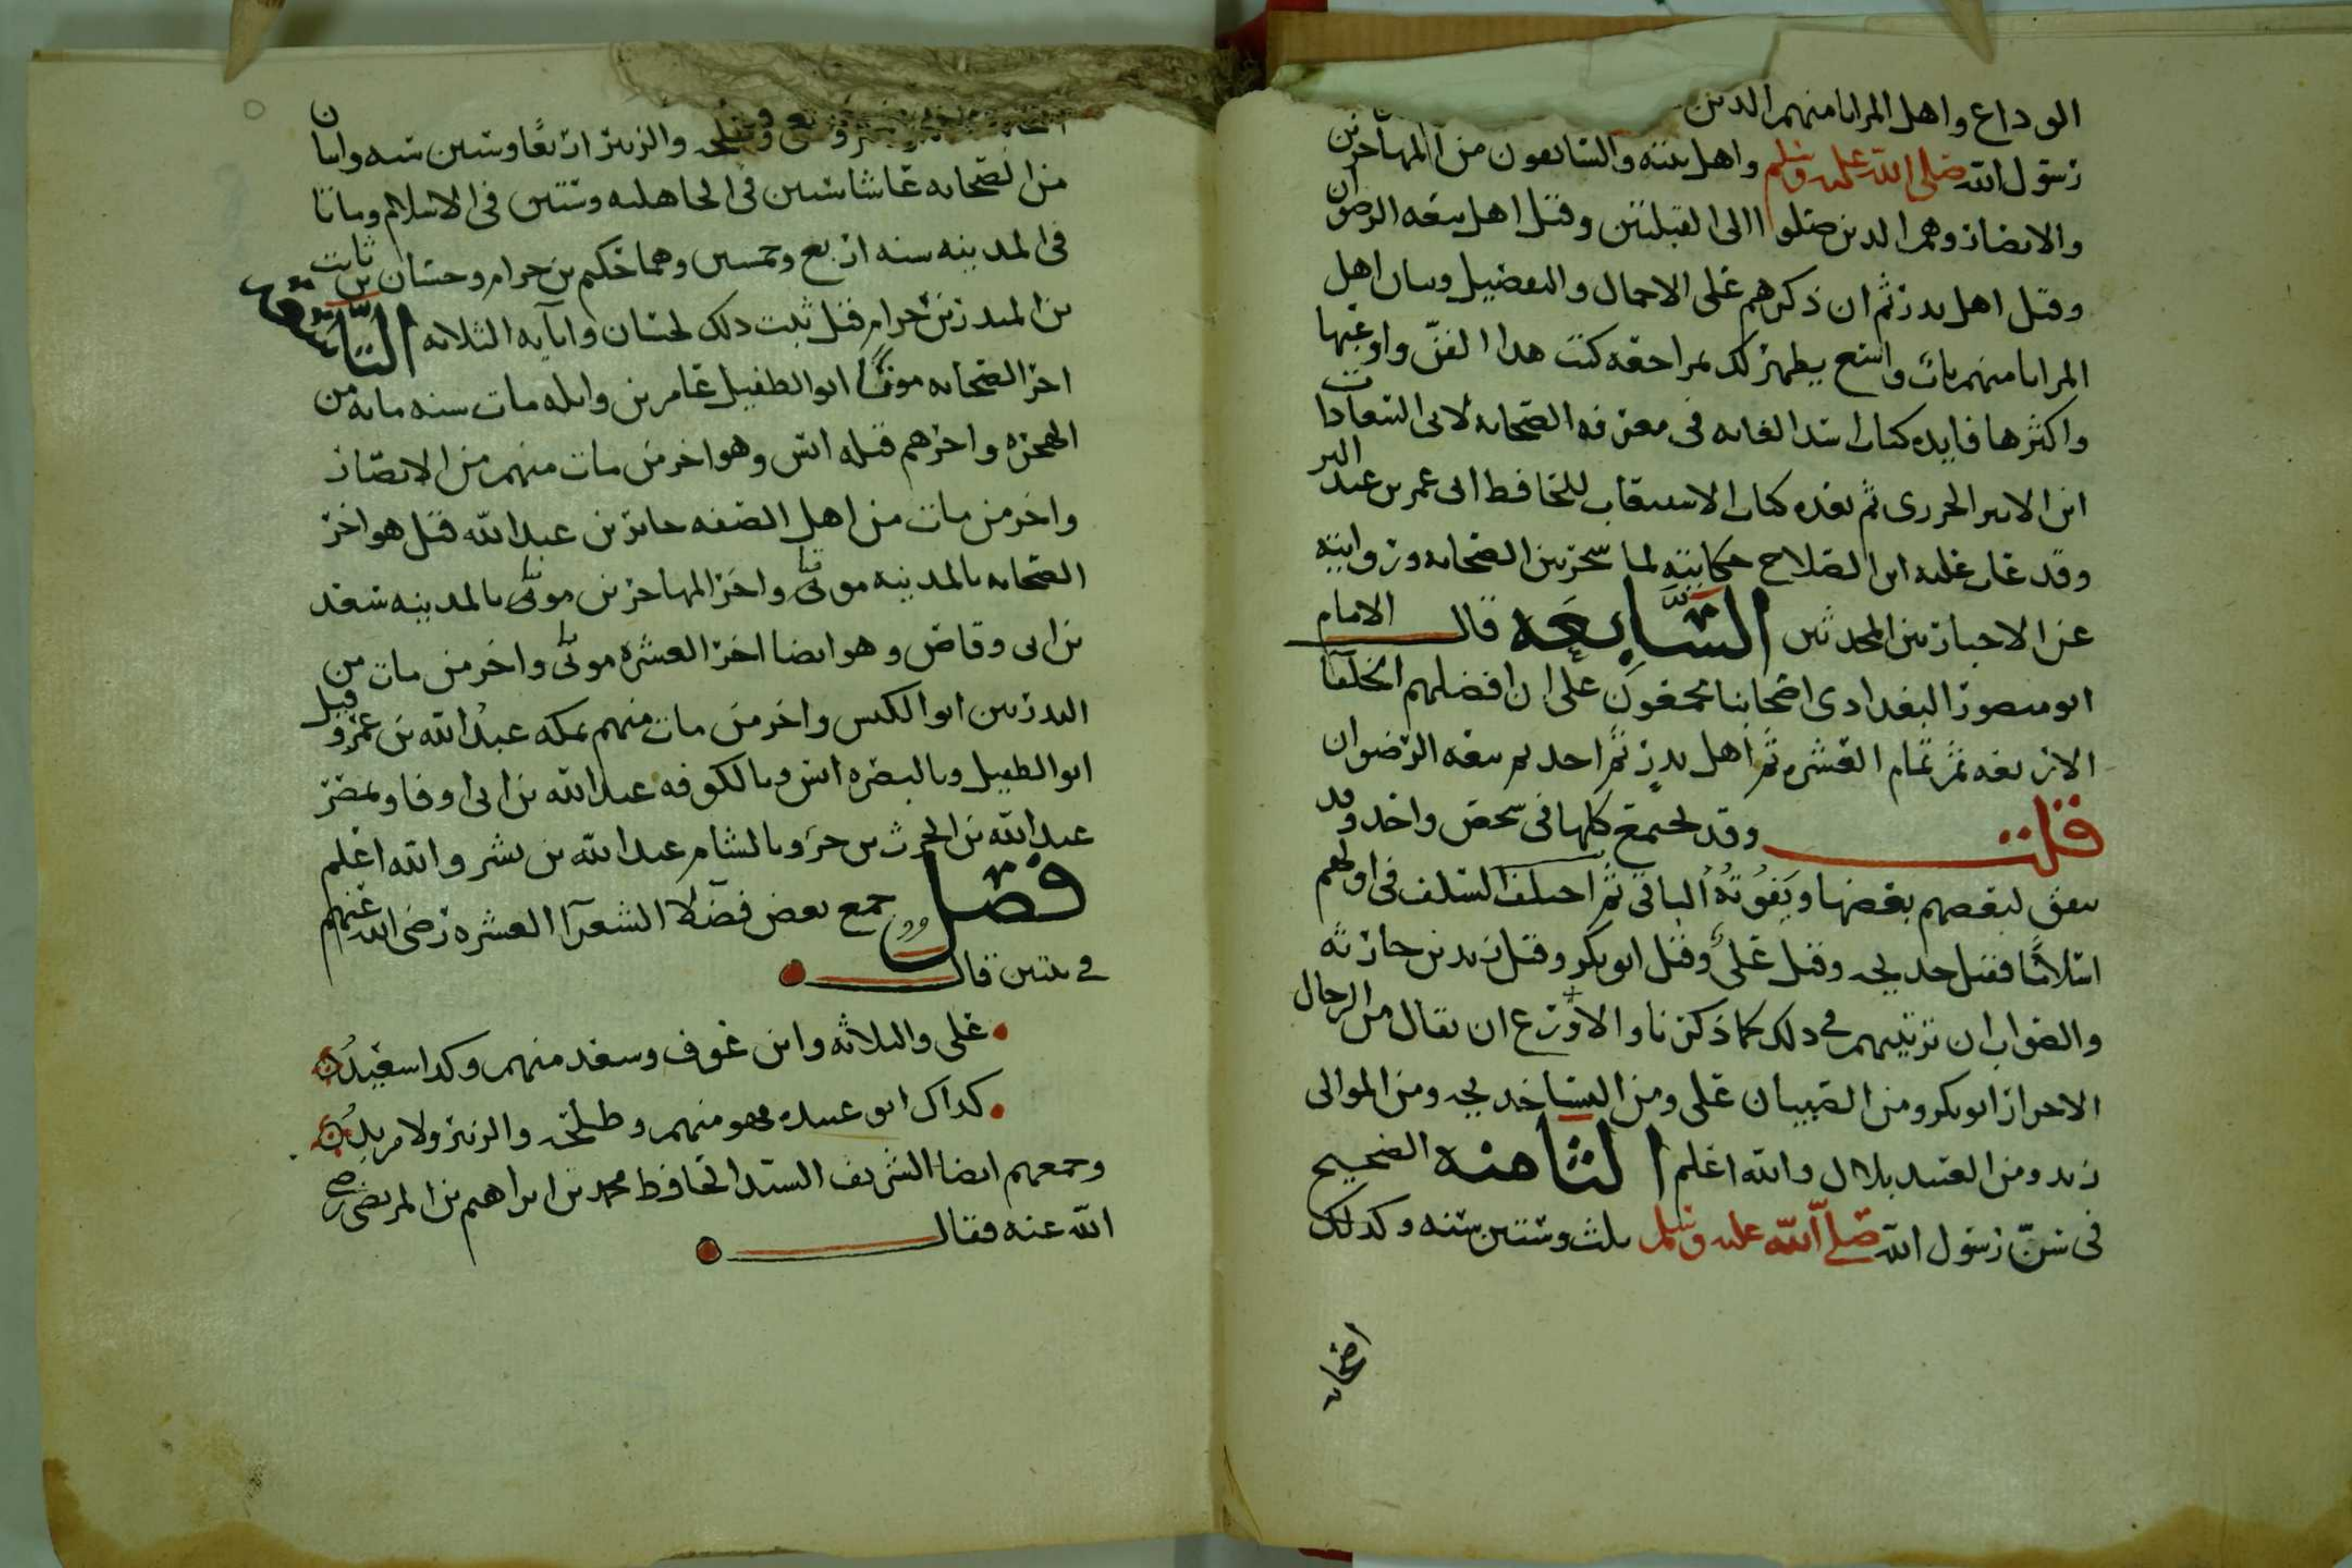 الوداع واهل المزايا منهم الذين
رسول الله صلى الله عليه وسلم واهل بيته والسابقون من المهاجرين
والانصار وهم الذين صلوا الى القبلتين وقيل اهل بيعه الرضوان
وقيل اهل بدر ثم ان ذكرهم على الاجمال والتفصيل وبيان اهل
المزايا منهم باب واسع يظهر لك بمراجعه كتب هذا الفن واوعبها
واكثرها فايده كتاب اسد الغابه في معرفه الصحابه لابى السعادات
ابن الاثير الجزري ثم بعده كتاب الاستيعاب للحافظ ابى عمر بن عبد البر
وقد عاب عليه ابن الصلاح حكايته لما شجر بين الصحابه وروايته
عن الاخباريين المحدثين السابعه قال الامام
ابو منصور البغدادى اصحابنا مجمعون على ان افضلهم الخلفا
الاربعه ثم تمام العشره ثم اهل بدر ثم احد ثم بيعه الرضوان
قلت وقد تجتمع كلها في شخص واحد وقد
يتفق لبعضهم بعضها ويفوته الباقي ثم اختلف السلف في اولهم
اسلاما فقيل خديجه وقيل علي وقيل ابو بكر وقيل زيد بن حارثه
والصواب ان ترتيبهم في ذلك كما ذكرنا والاورع ان يقال من الرجال
الاحرار ابو بكر ومن الصبيان علي ومن النسا خديجه ومن الموالى
زيد ومن العبيد بلال والله اعلم الثامنه الصحيح
في سن رسول الله صلى الله عليه وسلم ثلث وستين سنه وكذلك
وطلحه والزبير اربعا وستين سنه واثنان
من الصحابه عاشا ستين في الجاهليه وستين في الاسلام وماتا
في المدينه سنه اربع وخمسين وهما حكيم بن حزام وحسان بن ثابت
بن المنذر بن حرام قيل ثبت ذلك لحسان وابايه الثلاثه التاسعه
اخر الصحابه موتا ابو الطفيل عامر بن واثله مات سنه مايه من
الهجره واخرهم قبله انس وهو اخر من مات منهم من الانصار
واخر من مات من اهل الصفه جابر بن عبد الله قيل هو اخر
الصحابه بالمدينه موتا واخر المهاجرين موتا بالمدينه سعد
بن ابى وقاص وهو ايضا اخر العشره موتا واخر من مات من
البدريين ابو الكيس واخر من مات منهم بمكه عبد الله بن عمر وقيل
ابو الطفيل وبالبصره انس وبالكوفه عبد الله بن ابى اوفا وبمصر
عبد الله بن الحرث بن جزو وبالشام عبد الله بن بشر والله اعلم
فصل جمع بعض فضلا الشعرآ العشره رضى الله عنهم
في بيتين قال
علي والثلاثه وابن عوف وسعد منهم وكذا سعيد
كذاك ابو عبيده فهو منهم وطلحه والزبير ولا مزيد
وجمعهم ايضا الشريف السيد الحافظ محمد بن ابراهيم بن المرتضى رضى
الله عنه فقال